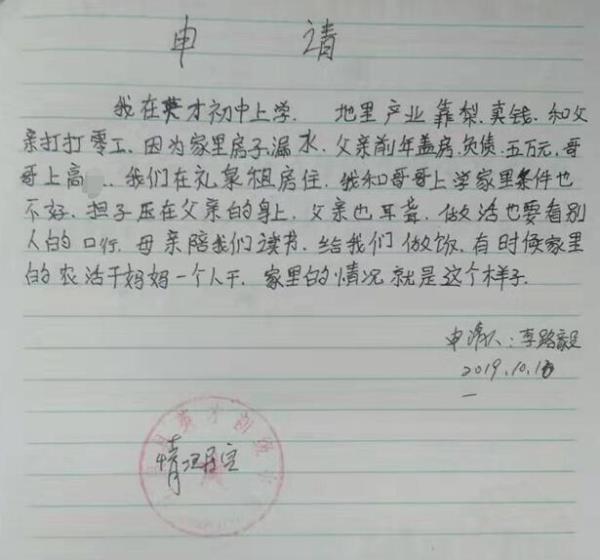 申 请
我在英才初中上学. 地里产业靠梨.卖钱.和父
亲打打零工.因为家里房子漏水.父亲前年盖房.负债.五万元,哥
哥上高 .我们在礼泉租房住.我和哥哥上学家里条件也
不好.担子压在父亲的身上.父亲也耳聋.做活也要看别
人的口行.母亲陪我们读书.给我们做饭.有时候家里
的农活干妈妈一个人干.家里的情况就是这个样子.
申请人:李路毅
2019.10.1
情况居实